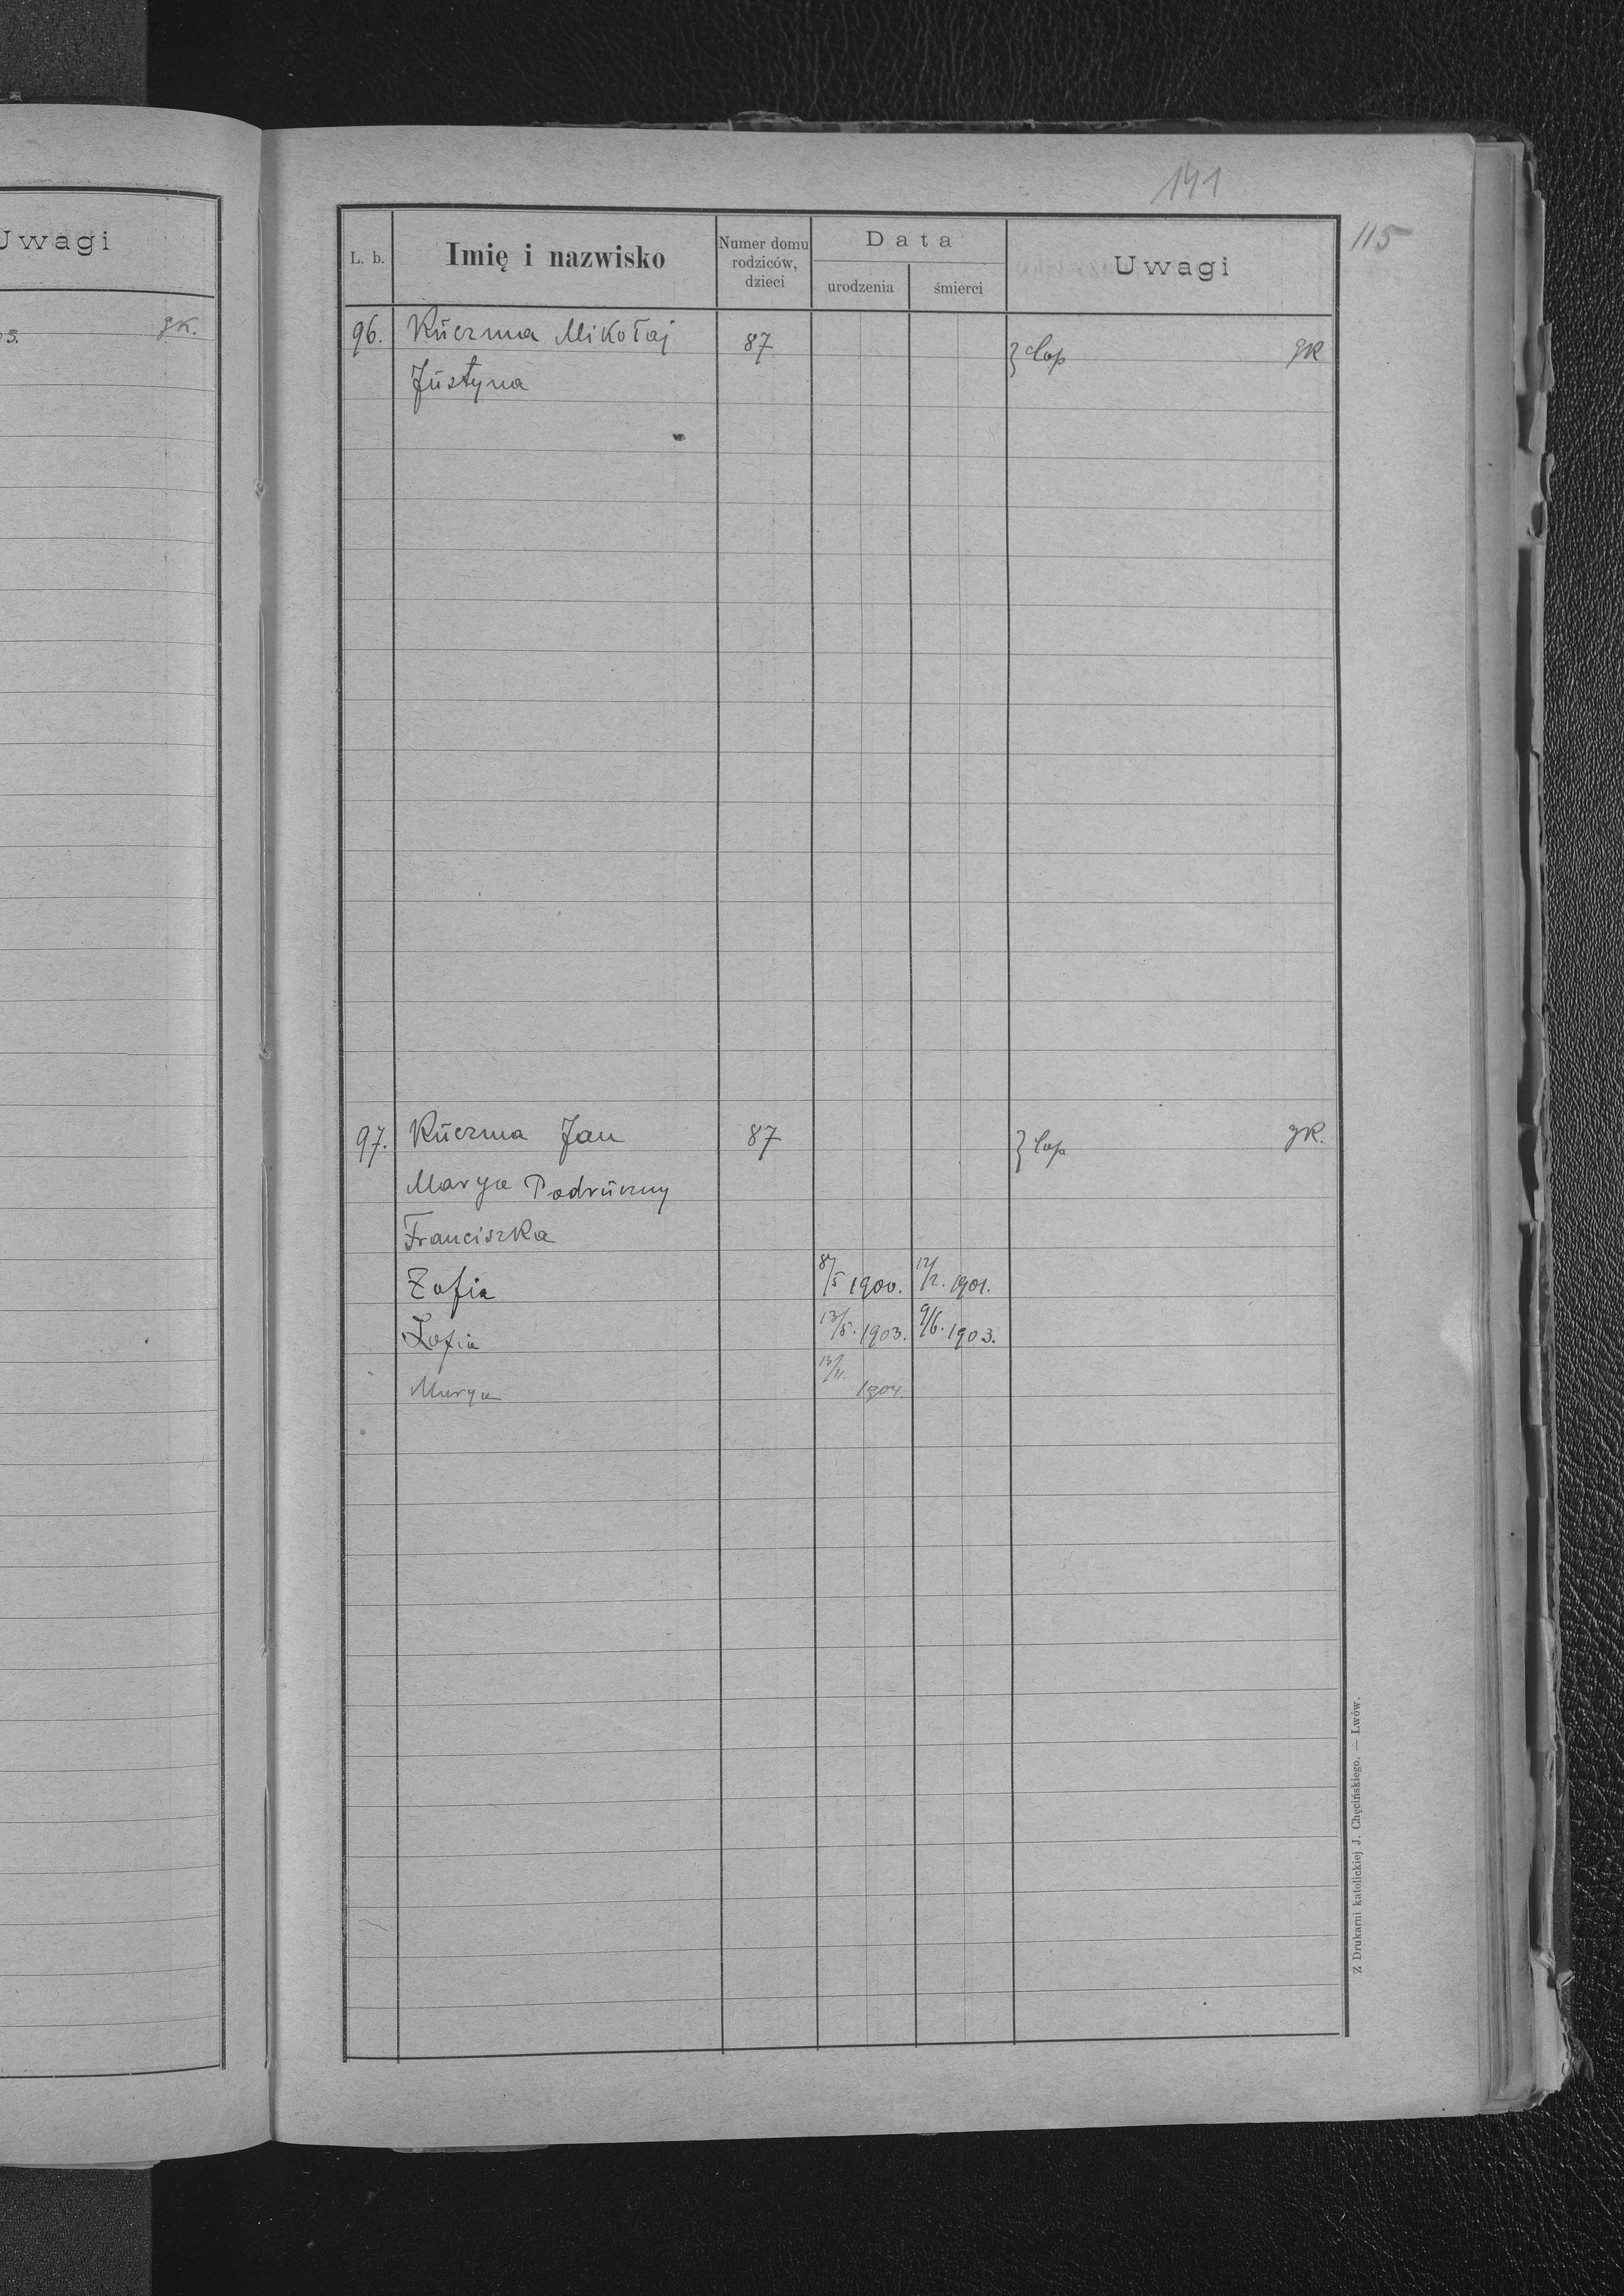 Uwagi
s. gk.
141
115
L. b. Imię i nazwisko Numer domu rodziców, dzieci Data urodzenia śmierci Uwagi
96. Kŭczma Mikołaj 87 gk
Jŭstyna
97. Kŭczma Jan 87 gk.
Marya Podrŭczny
Franciszka
Zofia 8/5 1900. 12/2. 1901.
Zofia 13/5. 1903. 9/6. 1903.
Marya 13/11. 1904.
Z Drukarni katolickiej J. Chęcińskiego. — Lwów.